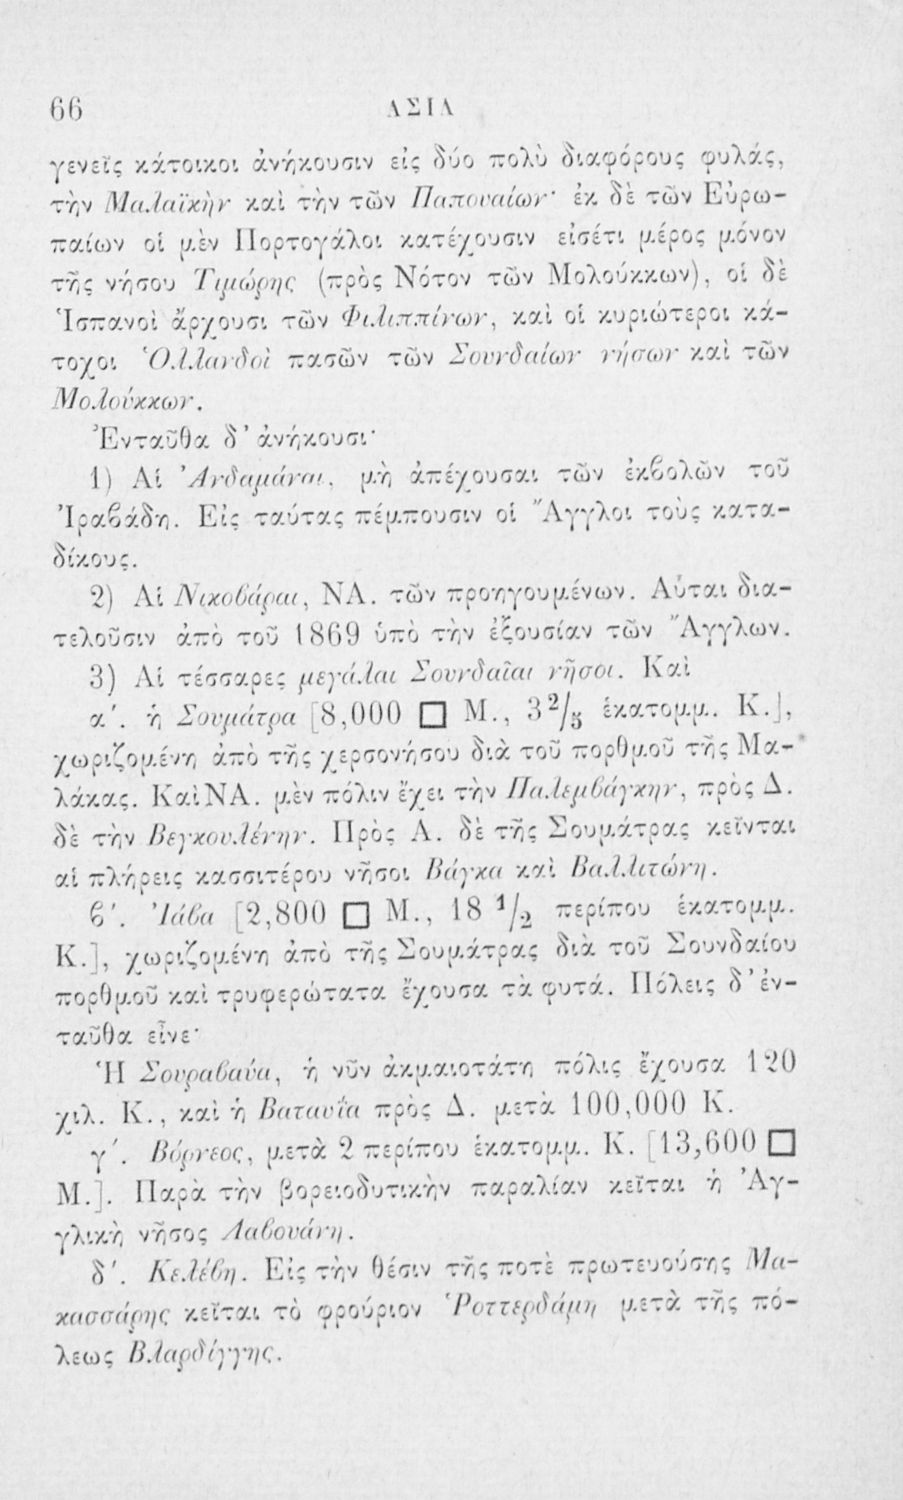 66 ΑΣΙΑ
γενεῖς κάτοικοι ἀνήκουσιν εἰς δύο πολὺ διαφόρους φυλάς,
τὴν Μαλαϊκὴν καὶ τὴν τῶν Παπουαίων· ἐκ δὲ τῶν Εὐρω-
παίων οἱ μὲν Πορτογάλοι κατέχουσιν εἰσέτι μέρος μόνον
τῆς νήσου Τιμώρης (πρὸς Νότον τῶν Μολούκκων), οἱ δὲ
Ἱσπανοὶ ἄρχουσι τῶν Φιλιππίνων, καὶ οἱ κυριώτεροι κά-
τοχοι Ὁλλανδοὶ πασῶν τῶν Σουνδαίων νήσων καὶ τῶν
Μολούκκων.
Ἐνταῦθα δ' ἀνήκουσι·
1) Αἱ Ἀνδαμάναι, μὴ ἀπέχουσαι τῶν ἐκβολῶν τοῦ
Ἰραβάδη. Εἰς ταύτας πέμπουσιν οἱ Ἄγγλοι τοὺς κατα-
δίκους.
2) Αἱ Νικοβάραι, ΝΑ. τῶν προηγουμένων. Αὗται δια-
τελοῦσιν ἀπὸ τοῦ 1869 ὑπὸ τὴν ἐξουσίαν τῶν Ἄγγλων.
3) Αἱ τέσσαρες μεγάλαι Σουνδαῖαι νῆσοι. Καὶ
α'. ἡ Σουμάτρα [8,000 □ Μ., 3 2/5 ἑκατομμ. Κ.],
χωριζομένη ἀπὸ τῆς χερσονήσου διὰ τοῦ πορθμοῦ τῆς Μα-
λάκας. Καὶ ΝΑ. μὲν πόλιν ἔχει τὴν Παλεμβάγκην, πρὸς Δ.
δὲ τὴν Βεγκουλένην. Πρὸς Α. δὲ τῆς Σουμάτρας κεῖνται
αἱ πλήρεις κασσιτέρου νῆσοι Βάγκα καὶ Βαλλιτώνη.
ϐ'. Ἰάβα [2,800 □ Μ., 18 1/2 περίπου ἑκατομμ.
Κ.], χωριζομένη ἀπὸ τῆς Σουμάτρας διὰ τοῦ Σουνδαίου
πορθμοῦ καὶ τρυφερώτατα ἔχουσα τὰ φυτά. Πόλεις δ' ἐν-
ταῦθα εἶνε·
Ἡ Σουραβαύα, ἡ νῦν ἀκμαιοτάτη πόλις ἔχουσα 120
χιλ. Κ., καὶ ἡ Βαταυΐα πρὸς Δ. μετὰ 100,000 Κ.
γ'. Βόρνεος, μετὰ 2 περίπου ἑκατομμ. Κ. [13,600 □
Μ.]. Παρὰ τὴν βορειοδυτικὴν παραλίαν κεῖται ἡ Ἀγ-
γλικὴ νῆσος Λαβουάνη.
δ'. Κελέβη. Εἰς τὴν θέσιν τῆς ποτὲ πρωτευούσης Μα-
κασσάρης κεῖται τὸ φρούριον Ῥοττερδάμη μετὰ τῆς πό-
λεως Βλαρδίγγης.